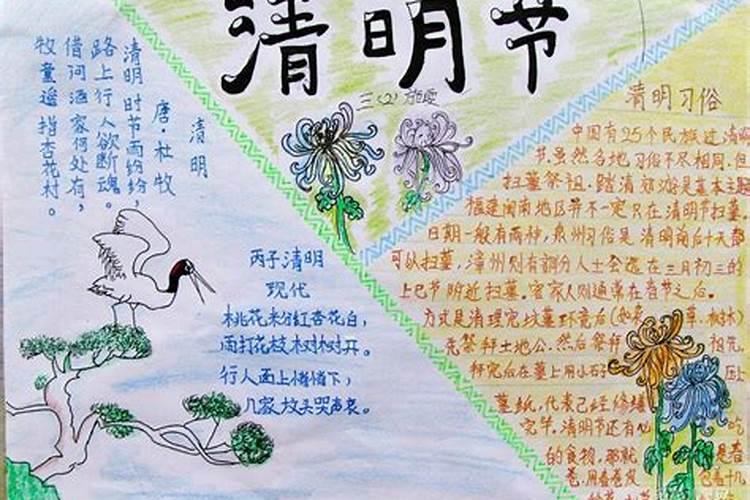 清明节
三(2)
清明
唐·杜牧
清明时节雨纷纷,
路上行人欲断魂。
借问酒家何处有,
牧童遥指杏花村。
丙子清明
现代
桃花粉红杏花白,
雨打花枝树树开。
行人面上情绪下,
几家坟头哭声哀。
清明习俗
中国有25个民族过清明
节.虽然各地习俗不尽相同.但
扫墓祭祖.踏清郊游是基本主题
福建闽南地区并不一定只在清明节扫墓,
日期一般有两种,泉州习俗是清明前后十天都
可以扫墓,漳州则有部分人士会选在三月初三的
上巳节附近扫墓。客家人则通常在春节之后。
方式是清理完坟墓环境后(如杂草、树木)
先祭拜土地公.然后祭拜祖先
拜完后在墓上用小石 压上
墓纸,代表已经修缮
完毕.清明节还有 的
的食物,那就 是春
卷.用春卷皮 包着